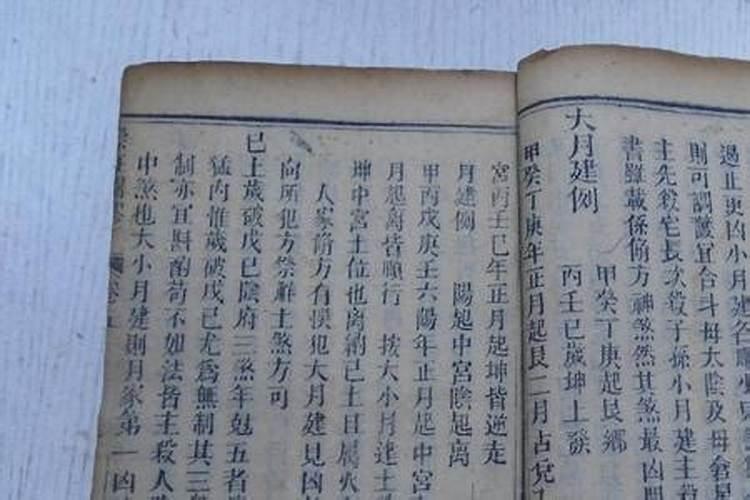 過止更凶小月建名
則可調艷宜合斗母太陰及母倉
主先殺宅長次殺子孫小月建主
書雖載係脩方神煞然其煞最凶
甲癸丁庚起艮鄉
大月建例　丙壬巳歲坤上發
甲癸丁庚年正月起艮二月占兌
宮丙壬巳年正月起坤皆逆走
月建例　陽起中宮陰起离
甲丙戊庚壬六陽年正月起中宮
月起离皆順行　按大小月建
坤中宮土位也离納己土且屬火
人家脩方有悞犯大月建見凶
向所犯方祭解土煞方可
已上歲破戊巳陰府三煞年尅五者
猛向惟歲破戊己尤為無制其三
制亦宜斟酌苟不如法皆主殺人
中煞也大小月建則月家第一凶